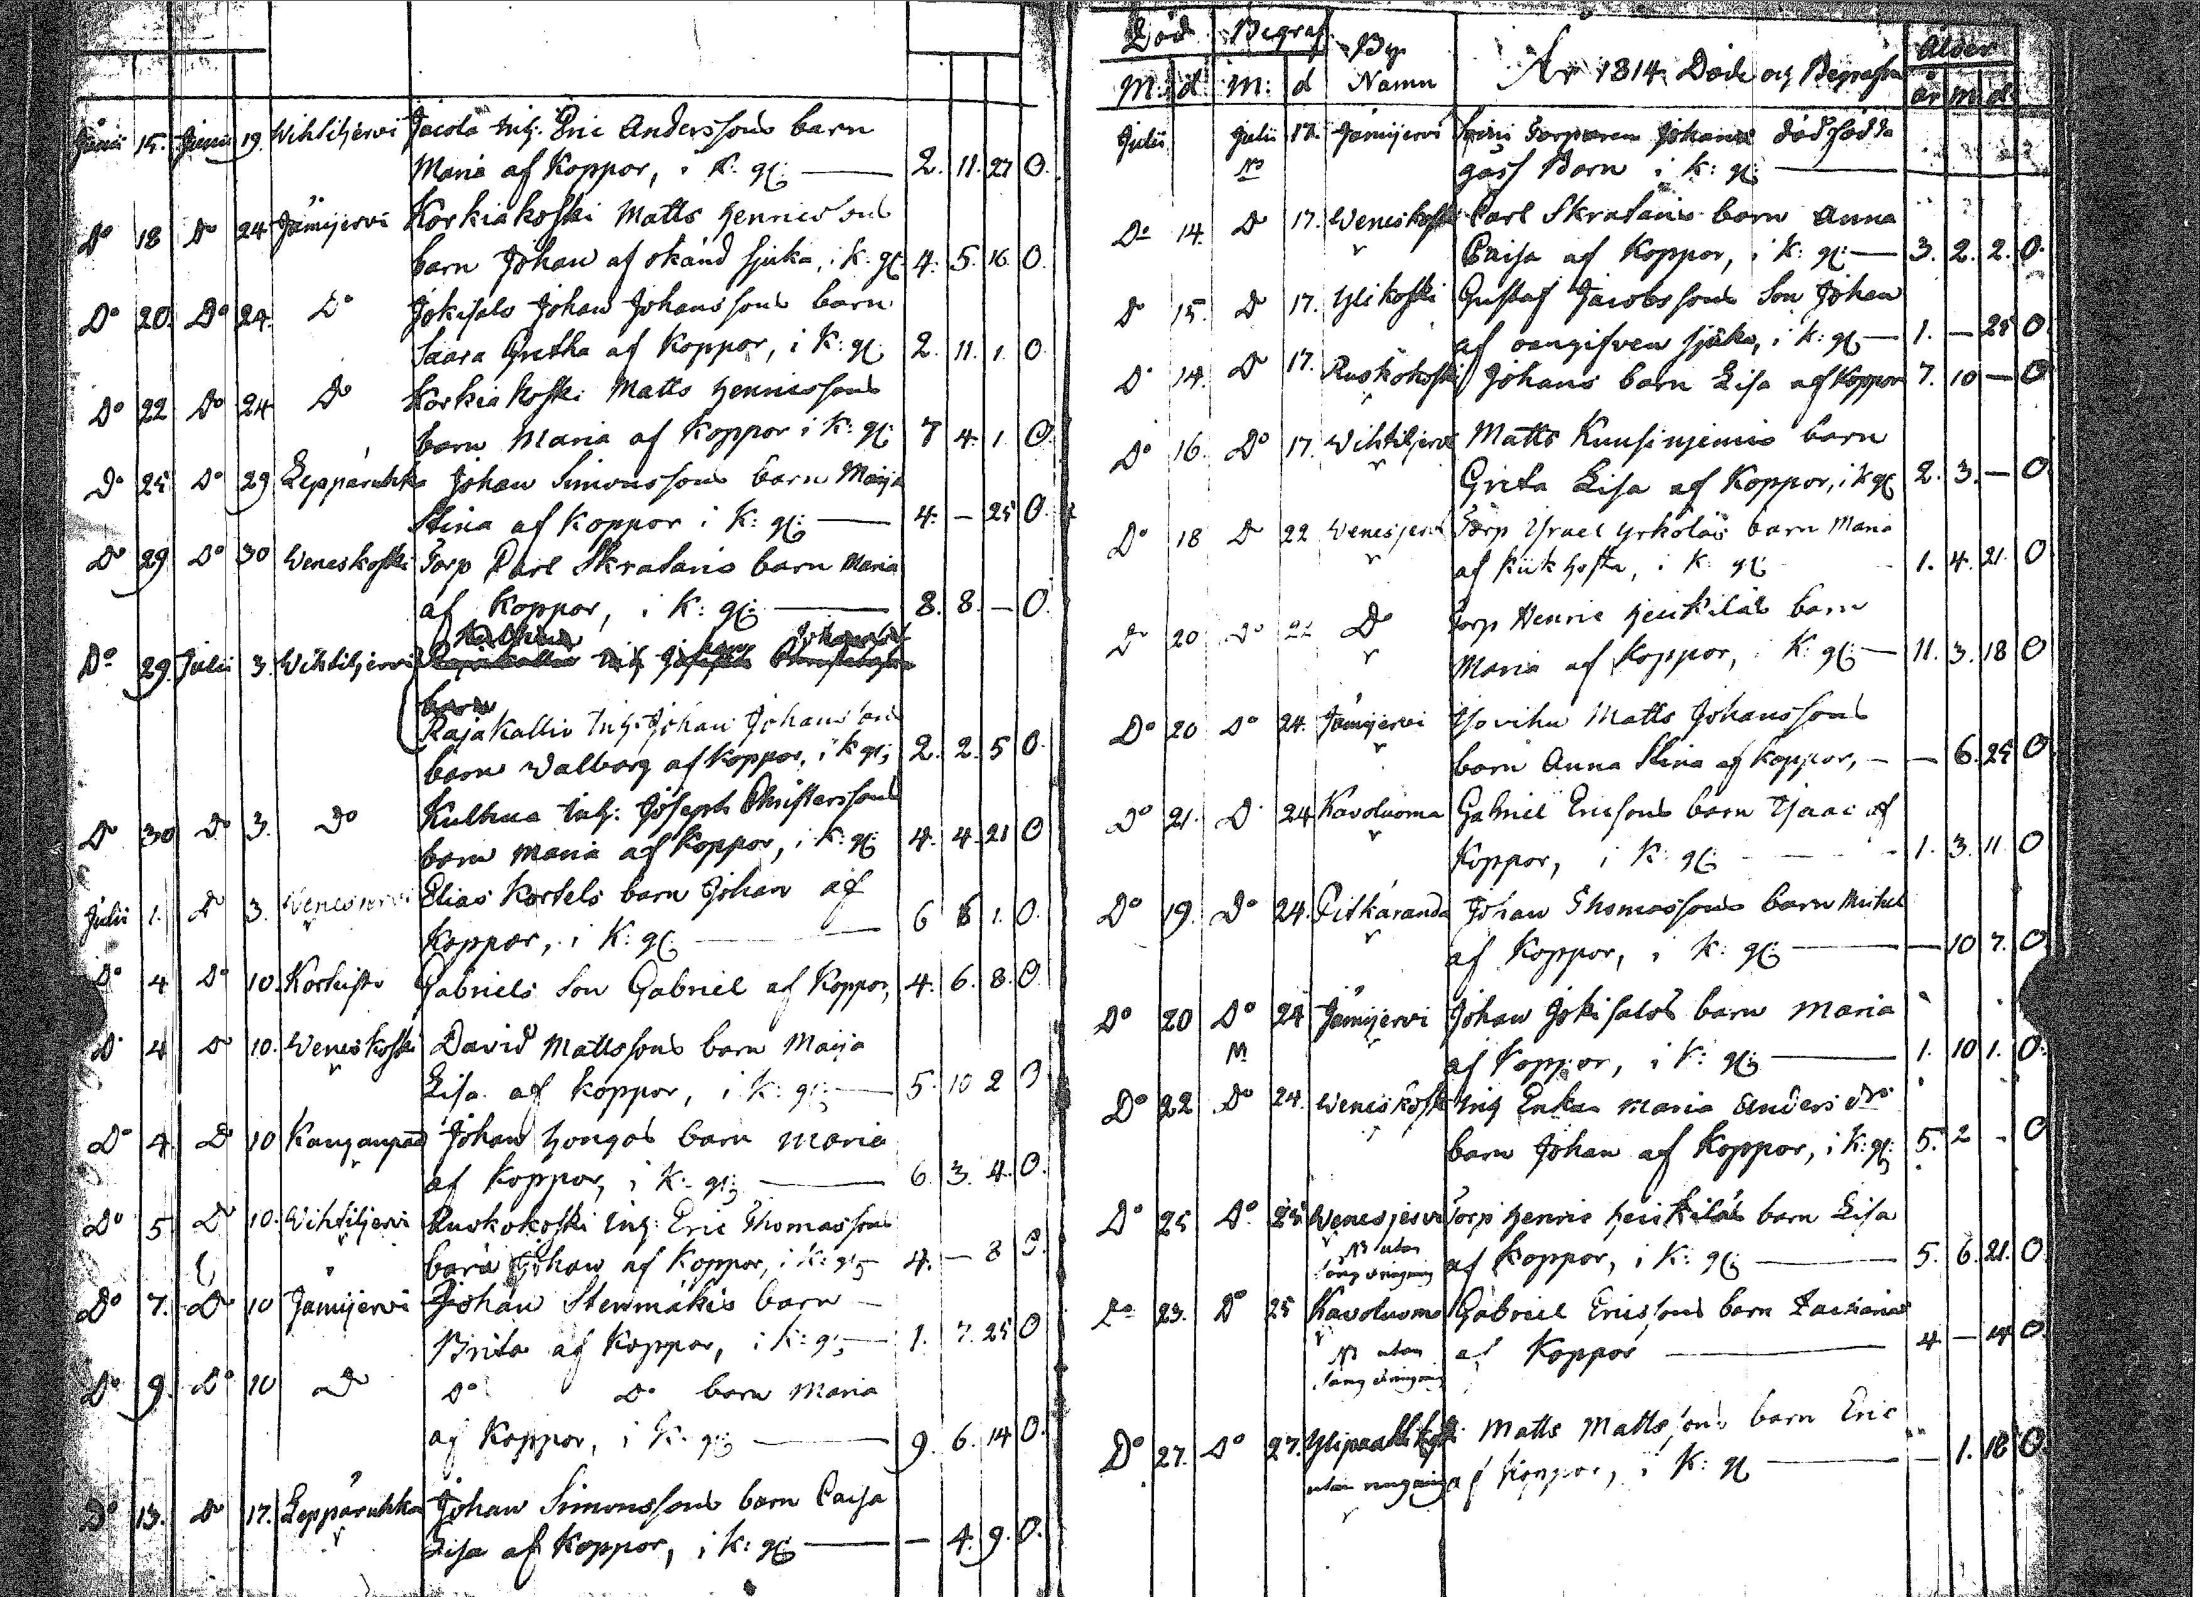 Junii 15. Junii 19. Wihtiljervi Jacola Inh: Eric Anderssons barn
Maria af Koppor, i K: gl: — 2. 11. 27 0.
Do 18 Do 24 Jämijervi Korkiakoski Matts Hennessons
barn Johan af okänd sjuka, i K: gl: 4. 5. 16. 0.
Do 20. Do 24. Do Jokisalo Johan Johanssons barn
Saara Gretha af Koppor, i K: gl: 2. 11. 1. 0.
Do 22 Do 24 Do Korkiakoski Matts Hennessons
barn Maria af Koppor i K: gl: 7 4. 1. 0.
Do 25 Do 29 Leppäruhka Johan Simonssons barn Maija
Stina af Koppor i K: gl: — 4. – 25 0.
Do 29 Do 30 Weneskoski Torp Carl Skratans barn Maria
af Koppor, i K: gl: — 8. 8. – 0.
Do 29. Julii 3. Wihtiljervi
barn
Rajakallio Inh: Johan Johanssons
barn Walborg af Koppor, i K gl: 2. 2. 5 0.
Do 30 Do 3. Do Kulhua Inh: Joseph Christerssons
barn Maria af Koppor, i K: gl: 4. 4. 21 0
Julii 1. Do 3. Wenesjervi Elias Kortels barn Johan af
Koppor, i K: gl: — 6 8 1. 0.
Do 4 Do 10. Gabriels Son Gabriel af Koppor, 4. 6. 8. 0
Do 4 Do 10. Weneskoski David Mattssons barn Maija
Lisa af Koppor, i K: gl: — 5. 10 2 0
Do 4. Do 10 Johan Hongos barn Maria
af Koppor, i K: gl: — 6. 3. 4. 0.
Do 5 Do 10. Wihtiljervi Ruskokoski Inh: Eric Thomassons
barn Johan af Koppor, i K: gl: 4. – 8 0.
Do 7. Do 10 Jämijervi Johan Stenmäkis barn –
Brita af Koppor, i K: gl: — 1. 7. 25 0
Do 9. Do 10 Do Do Do barn Maria
af Koppor, i K: gl: — 9. 6. 14 0.
Do 13. Do 17. Leppäruhka Johan Simonssons barn Caisa
Lisa af Koppor, i K: gl: — – 4. 9. 0.
Död Begraf. By Namn År 1814 Döde og Begrafne Alder
M: d. M: d år m. d.
Julii Julii 17. Jämijervi Torparen Johans dödfödda
goss Barn i K: gl: —
Do 14. Do 17. Weneskoski Carl Skratans barn Anna
Caisa af Koppor, i K: gl: — 3. 2. 2. 0.
Do 15. Do 17. Ylikoski Gustaf Jacobssons Son Johan
af oangifven sjuka, i K: gl: — 1. – 25 0.
Do 14. Do 17. Ruskokoski Johans barn Lisa af Koppor 7. 10 – 0
Do 16. Do 17. Wihtiljervi Matts Kuusinjemis barn
Greta Lisa af Koppor, i K gl: 2. 3. – 0
Do 18 Do 22 Wenesjervi Torp Israel Yrkoläs barn Maria
af Kikhosta, i K: gl: 1. 4. 21. 0
Do 20 Do 22 Do Torp Henric Heikiläs barn
Maria af Koppor, i K: gl: — 11. 3. 18 0
Do 20 Do 24. Jämijervi Matts Johanssons
barn Anna Stina af Koppor, – – 6. 25 0
Do 21. Do 24 Kavoluoma Gabriel Ericsons barn Isaac af
Koppor, i K: gl: 1. 3. 11. 0
Do 19. Do 24. Pitkäranda Johan Thomassons barn Michel
af Koppor, i K: gl: — – 10 7. 0
Do 20 Do 24 Jämijervi Johan Jokisalos barn Maria
af Koppor, i K: gl: — 1. 10 1. 0.
Do 22 Do 24. Weneskoski Inh Enkan Maria Anders dr
barn Johan af Koppor, i K: gl: 5. 2 – 0
Do 25 Do 25 Wenesjervi Torp Henric Heikiläs barn Lisa
utan af Koppor, i K: gl: — 5. 6. 21. 0
Do 23. Do 25 Kavoluoma Gabriel Ericssons barn Zacharias
utan af Koppor — 4 – 14 0.
Do 27. Do 27. Matts Mattssons barn Eric
utan af Koppor, i K: gl: — – 1. 18 0.